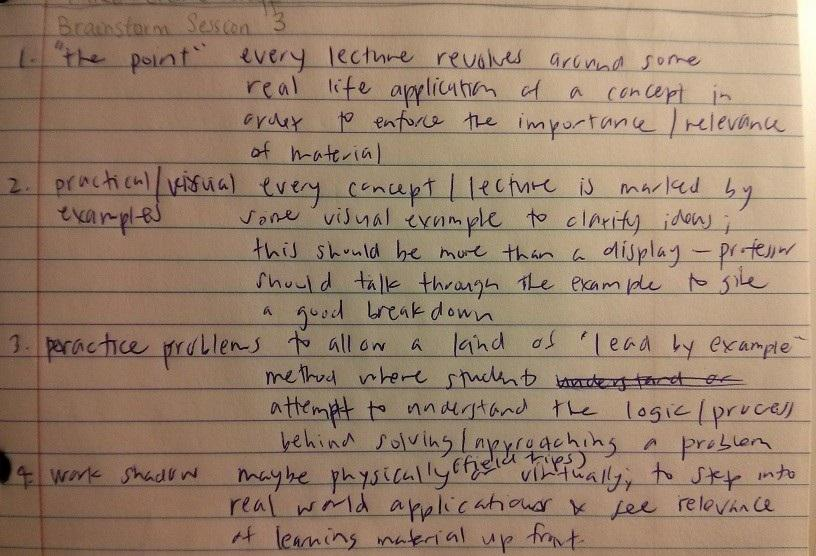 Brainstorm Session 3
1. "the point" every lecture revolves around some
real life application of a concept in
order to enforce the importance/relevance
of material
2. practical/visual every concept/lecture is marked by
examples some visual example to clarify ideas;
this should be more than a display - professor
should talk through the example to give
a good breakdown
3. practice problems to allow a kind of "lead by example"
method where students understand or
attempt to understand the logic/process
behind solving/approaching a problem
4. work shadow maybe physically (field trips) or virtually; to step into
real world applications & see relevance
of learning material up front.